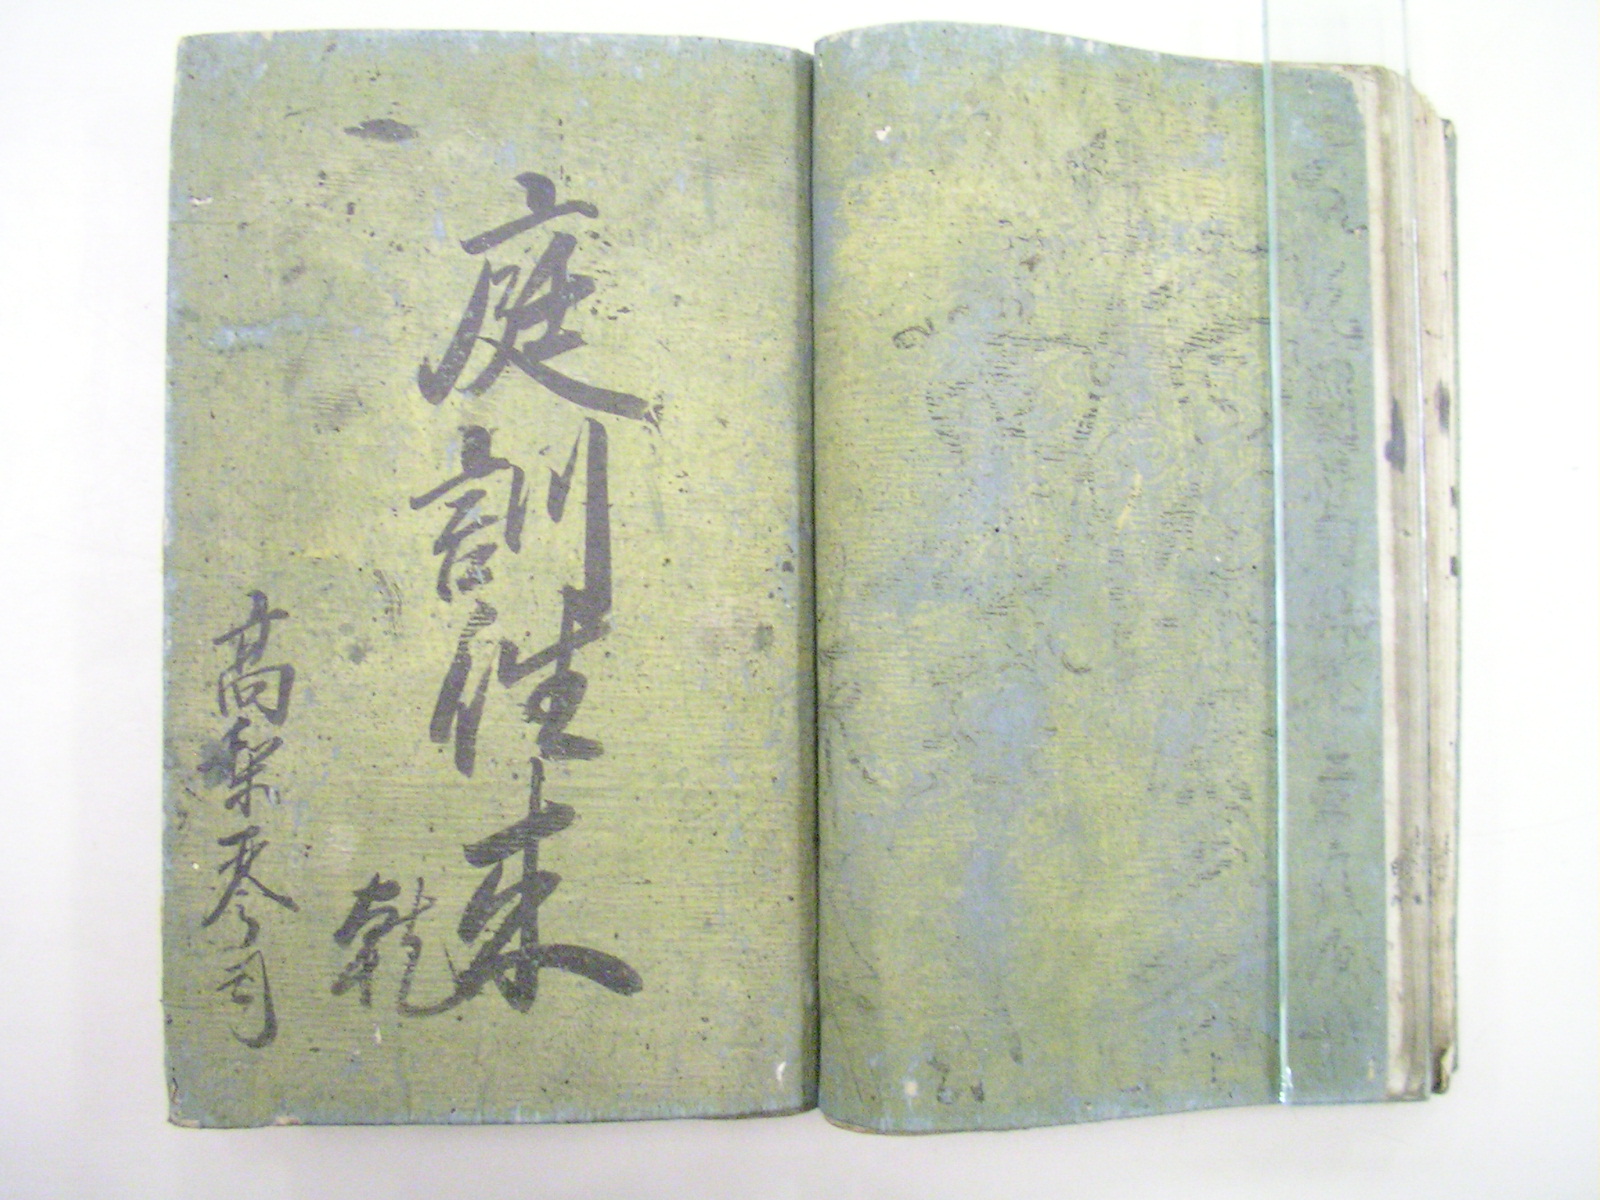 庭訓往来
乾
高梨琴司